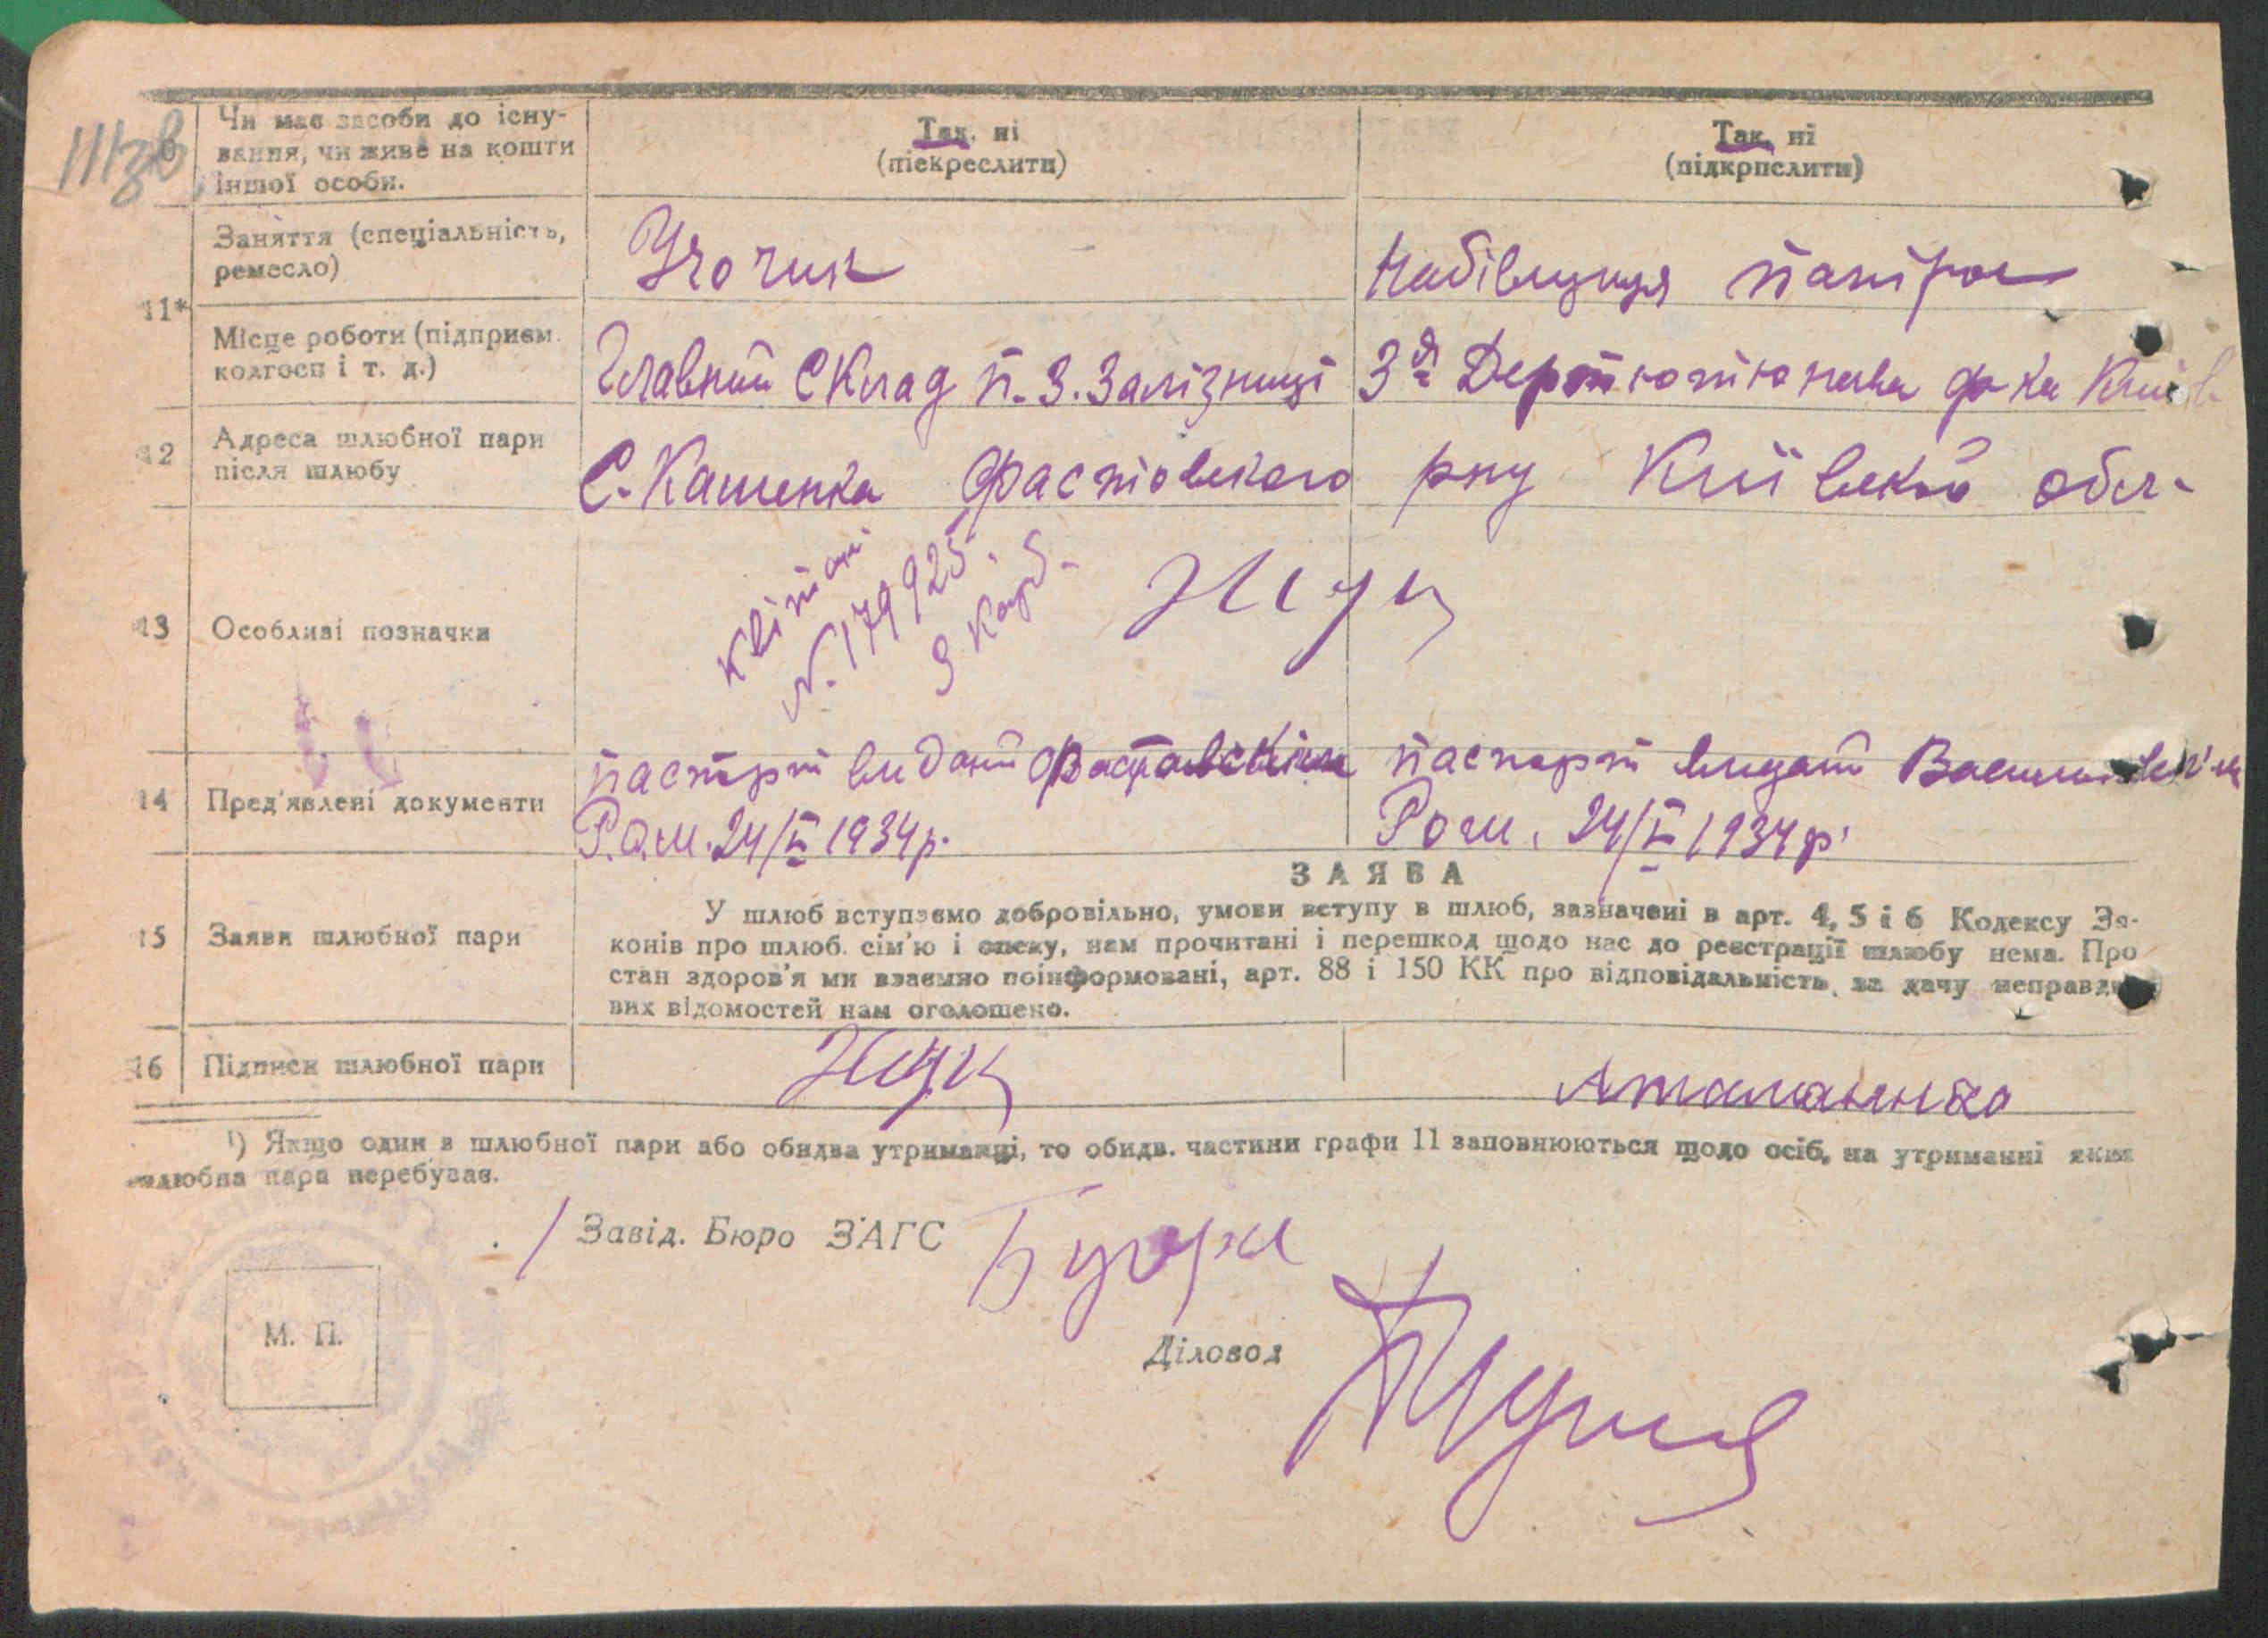 Чи має засоби до існу-
вання, чи живе на кошти
іншої особи.
Так, ні
(піекреслити)
Так, ні
(підкрпслити)
11*
Заняття (спеціальність,
ремесло)
Набівщиця папірос
Місце роботи (підприєм.
колгосп і т. д.)
Главний Склад П. З. Залізниці
3я Держ тютюнова ф-ка Київ
12
Адреса шлюбної пари
після шлюбу
С. Кашенка Фастовського рну Київської обл-
13
Особливі позначки
квітанц.
N. 179925.
3 карб.
14
Пред'явлені документи
паспорт виданий Фастовским
Р.О.М. 24/V 1934р.
паспорт видан
Р о м. 24/V 1934р.
15
Заяви шлюбної пари
ЗАЯВА
У шлюб вступаємо добровільно, умови вступу в шлюб, зазначені в арт. 4, 5 і 6 Кодексу За-
конів про шлюб. сім'ю і опеку, нам прочитані і перешкод щодо нас до реєстрації шлюбу нема. Про
стан здоров'я ми взаємно поінформовані, арт. 88 і 150 КК про відповідальність за дачу неправди-
вих відомостей нам оголошено.
16
Підписи шлюбної пари
¹) Якщо один з шлюбної пари або обидва утриманці, то обидв. частини графи 11 заповнюються щодо осіб, на утриманні яких
шлюбна пара перебуває.
Завід. Бюро ЗАГС
М. П.
Діловод